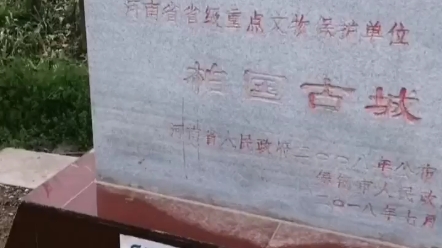 河南省省级重点文物保护单位
柏国古城
河南省人民政府二〇〇八年公布
人民政
二〇一八年七月